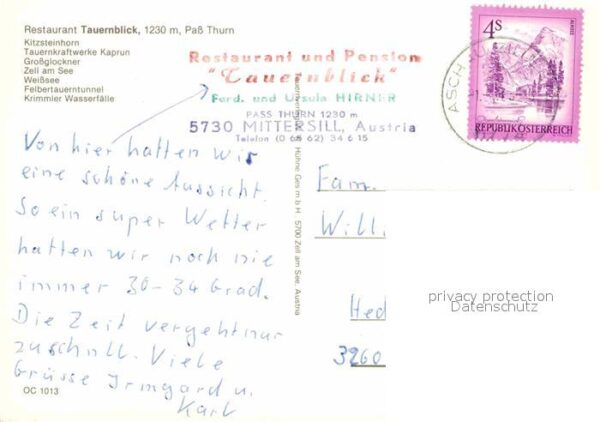 Restaurant Tauernblick, 1230 m, Paß Thurn
Kitzsteinhorn
Tauernkraftwerke Kaprun
Großglockner
Zell am See
Weißsee
Felbertauerntunnel
Krimmler Wasserfälle
Restaurant und Pension
"Tauernblick"
Ferd. und Ursula HIRNER
PASS THURN 1230 m
5730 MITTERSILL, Austria
Telefon (0 65 62) 34 6 15
4S
REPUBLIK ÖSTERREICH
ASCH
Von hier hatten wir
eine schöne Aussicht.
So ein super Wetter
hatten wir noch nie
immer 30-34 Grad.
Die Zeit vergeht nur
zu schnell. Viele
Grüsse Irmgard u.
Karl
OC 1013
Hühne Ges m b H 5700 Zell am See, Austria
Fam.
Will
Hed
3260
privacy protection
Datenschutz